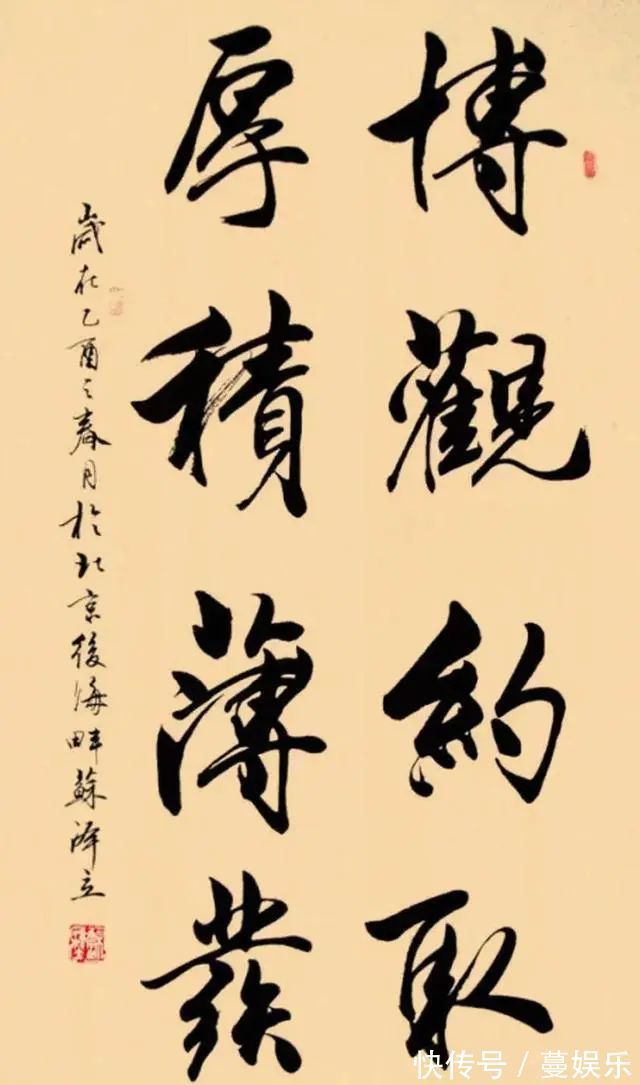 博觀約取
厚積薄發
歲在乙酉之春月於北京後海畔蘇澤立
快传号 / 蔓娱乐